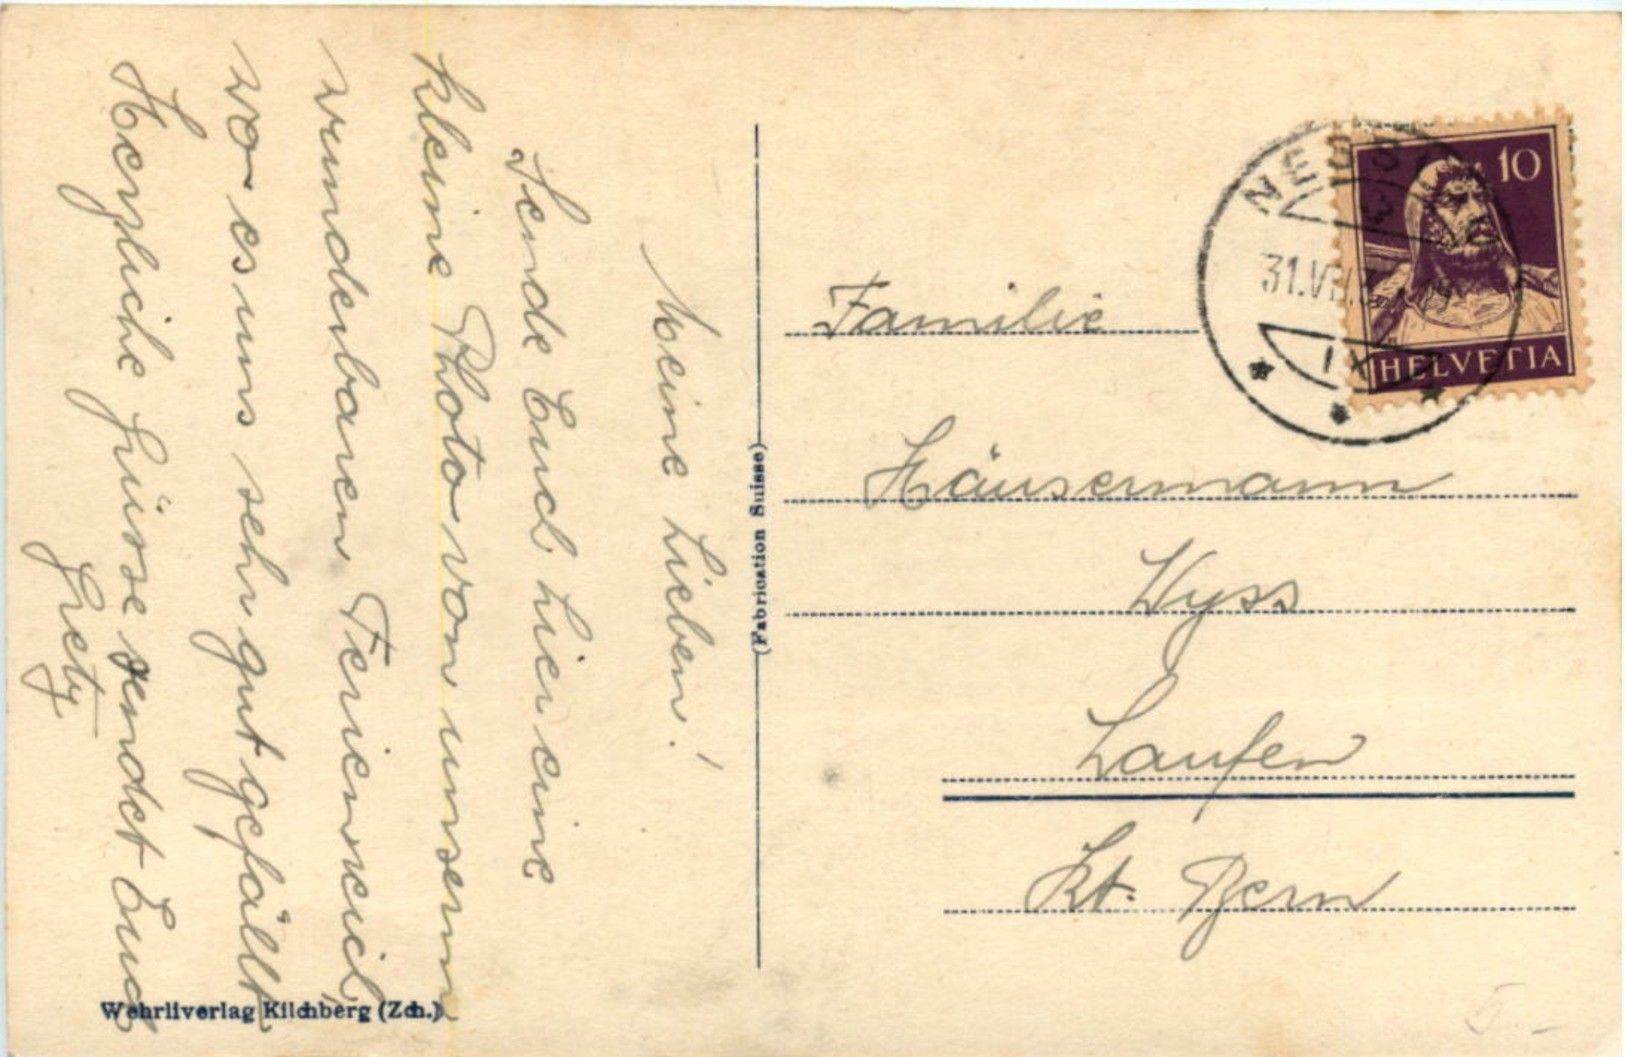 Meine Lieben!
Sende Euch hier eine
kleine Photo von unserm
wunderbaren Ferienweid,
wo es uns sehr gut gefällt
Herzliche Grüsse sendet Euch
Grety
(Fabrication Suisse)
Wehrliverlag Kilchberg (Zch.)
10
HELVETIA
31.VII.
IX
Familie
Häusermann
Wyss
Laufen
Kt. Bern
5.-